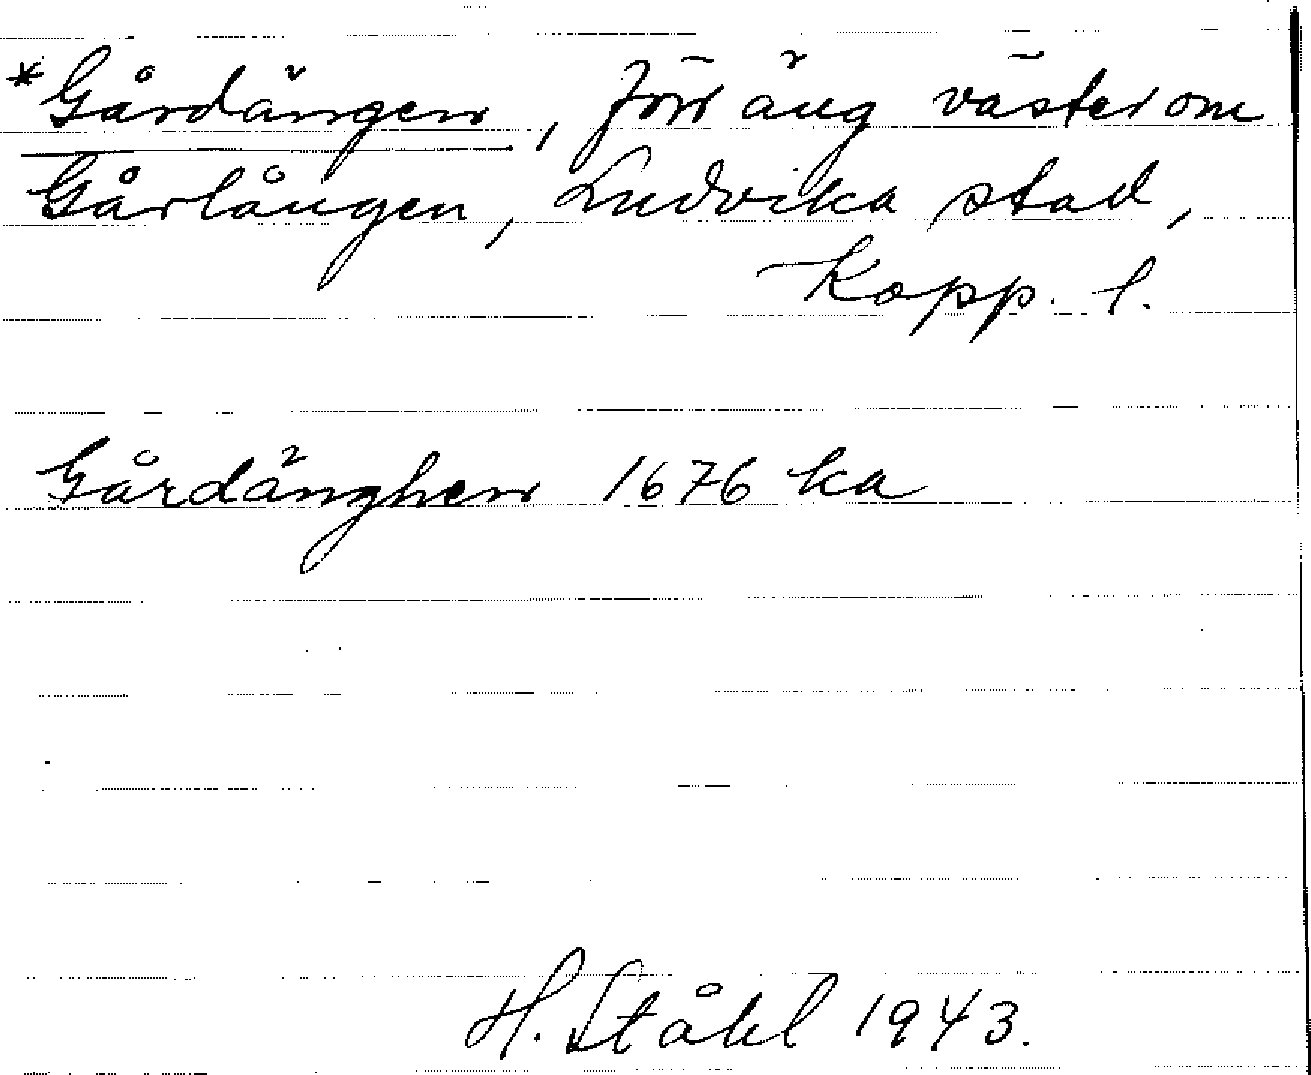 *Gårdängen, förr äng väster om
Gårlången, Ludvika stad,
Kopp. l.
Gårdänghen 1676 ka
H. Ståhl 1943.